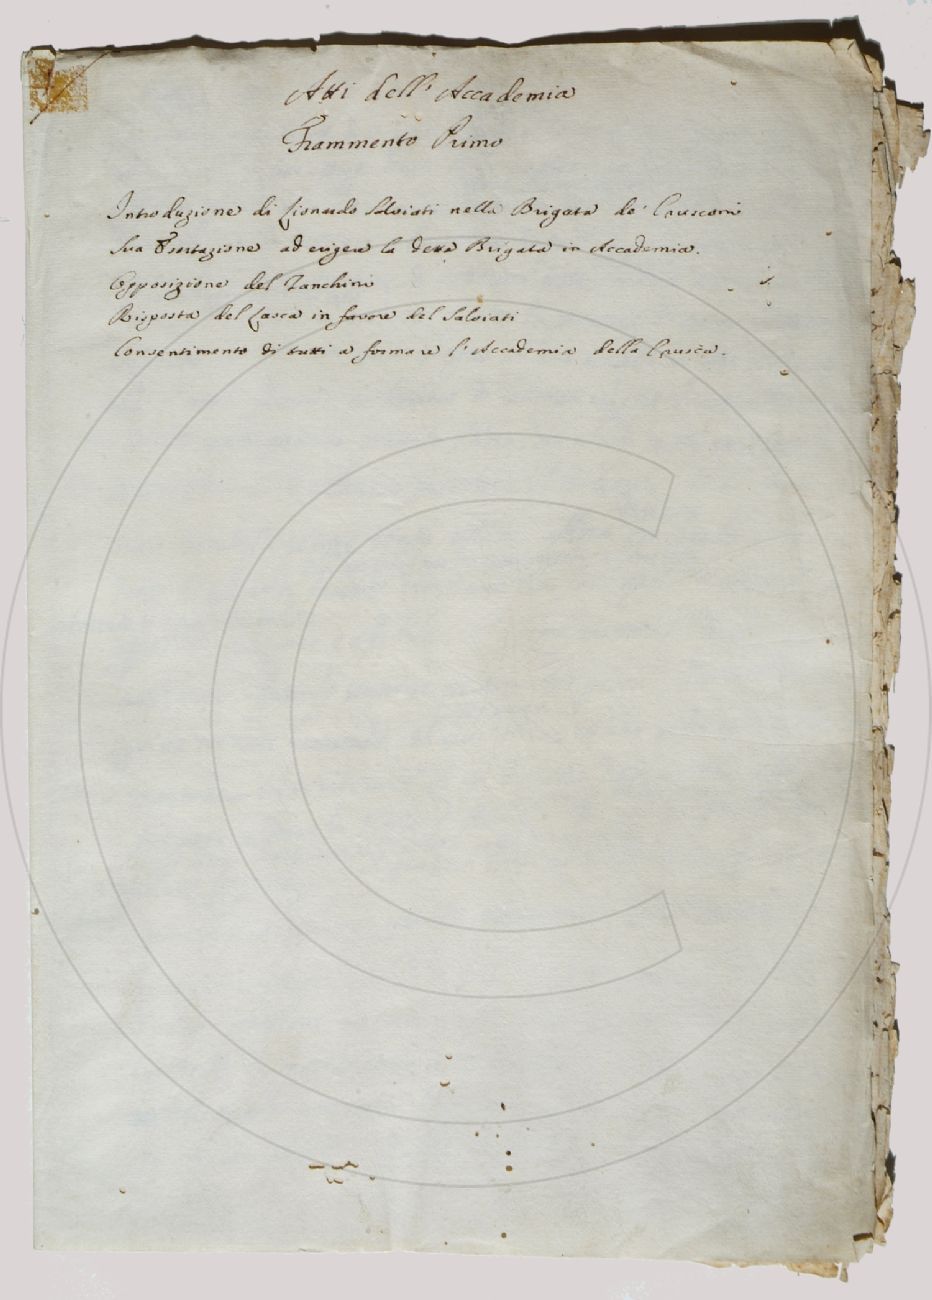 Atti dell' Accademia
Frammento Primo
Introduzione di Lionardo Salviati nella Brigata de' Crusconi
Sua Esortazione ad erigere la detta Brigata in Accademia.
Opposizione del Zanchini
Risposta del Lasca in favore del Salviati
Consentimento di tutti a formare l'Accademia della Crusca.